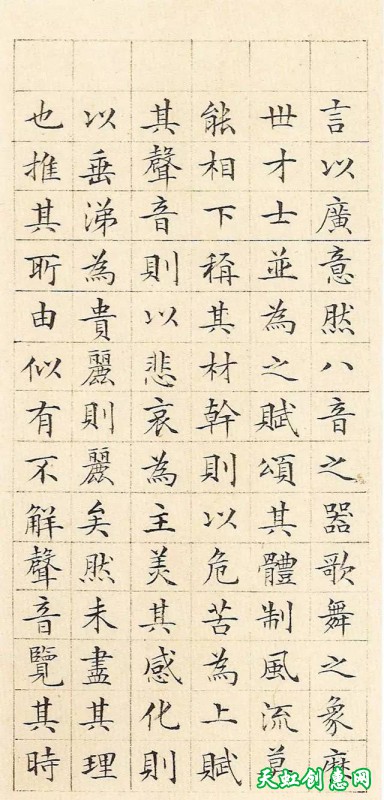 言以廣意然八音之器歌舞之象歷
世才士並為之賦頌其體制風流莫
能相下稱其材幹則以危苦為上賦
其聲音則以悲哀為主美其感化則
以垂涕為貴麗則麗矣然未盡其理
也推其所由似有不解聲音覽其時
天虹创惠网